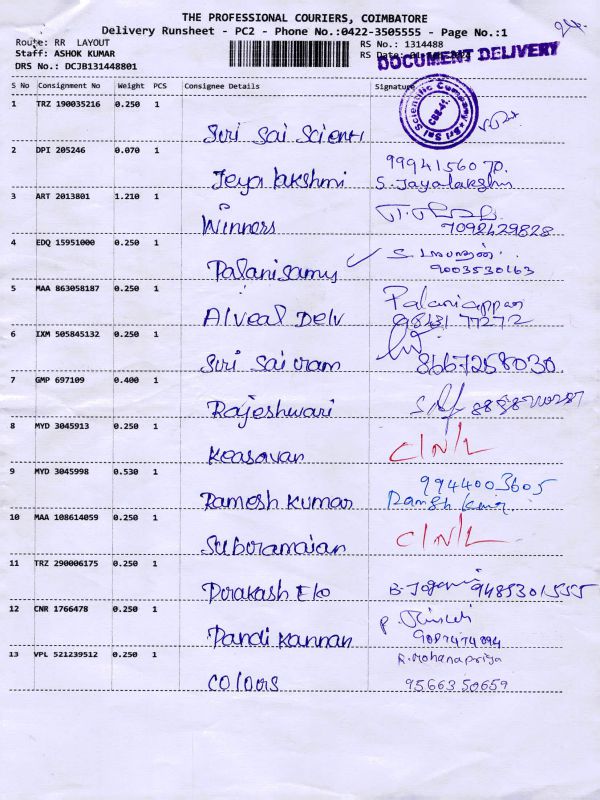 THE PROFESSIONAL COURIERS, COIMBATORE
Delivery Runsheet - PC2 - Phone No.:0422-3505555 - Page No.:1
Route: RR LAYOUT
RS No.: 1314488
Staff: ASHOK KUMAR
RS Date:
DOCUMENT DELIVERY
DRS No.: DCJB131448801
S No Consignment No Weight PCS Consignee Details Signature
Sri Sai Scientific Company
1 TRZ 190035216 0.250 1
Siri Sai Scienti
2 DPI 205246 0.070 1
9994156070.
Jeya lakshmi S. Jayalakshmi
3 ART 2013801 1.210 1
Winners 7092429828
4 EDQ 15951000 0.250 1
Palanisamy 9003530163
5 MAA 863058187 0.250 1
Palaniappan
Alveal Delv 98431 77272
6 IXM 505845132 0.250 1
Siri Sai vram 8667258030.
7 GMP 697109 0.400 1
Rajeshwari
8 MYD 3045913 0.250 1
Keasavan C/N/L
9 MYD 3045998 0.530 1
9944003605
Ramesh Kumar
10 MAA 108614059 0.250 1
Suboramaian C/N/L
11 TRZ 290006175 0.250 1
Porakash Eko 9485301555
12 CNR 1766478 0.250 1
Pandi Kannan
13 VPL 521239512 0.250 1
R. Mohanapriya
Colours 9566350659